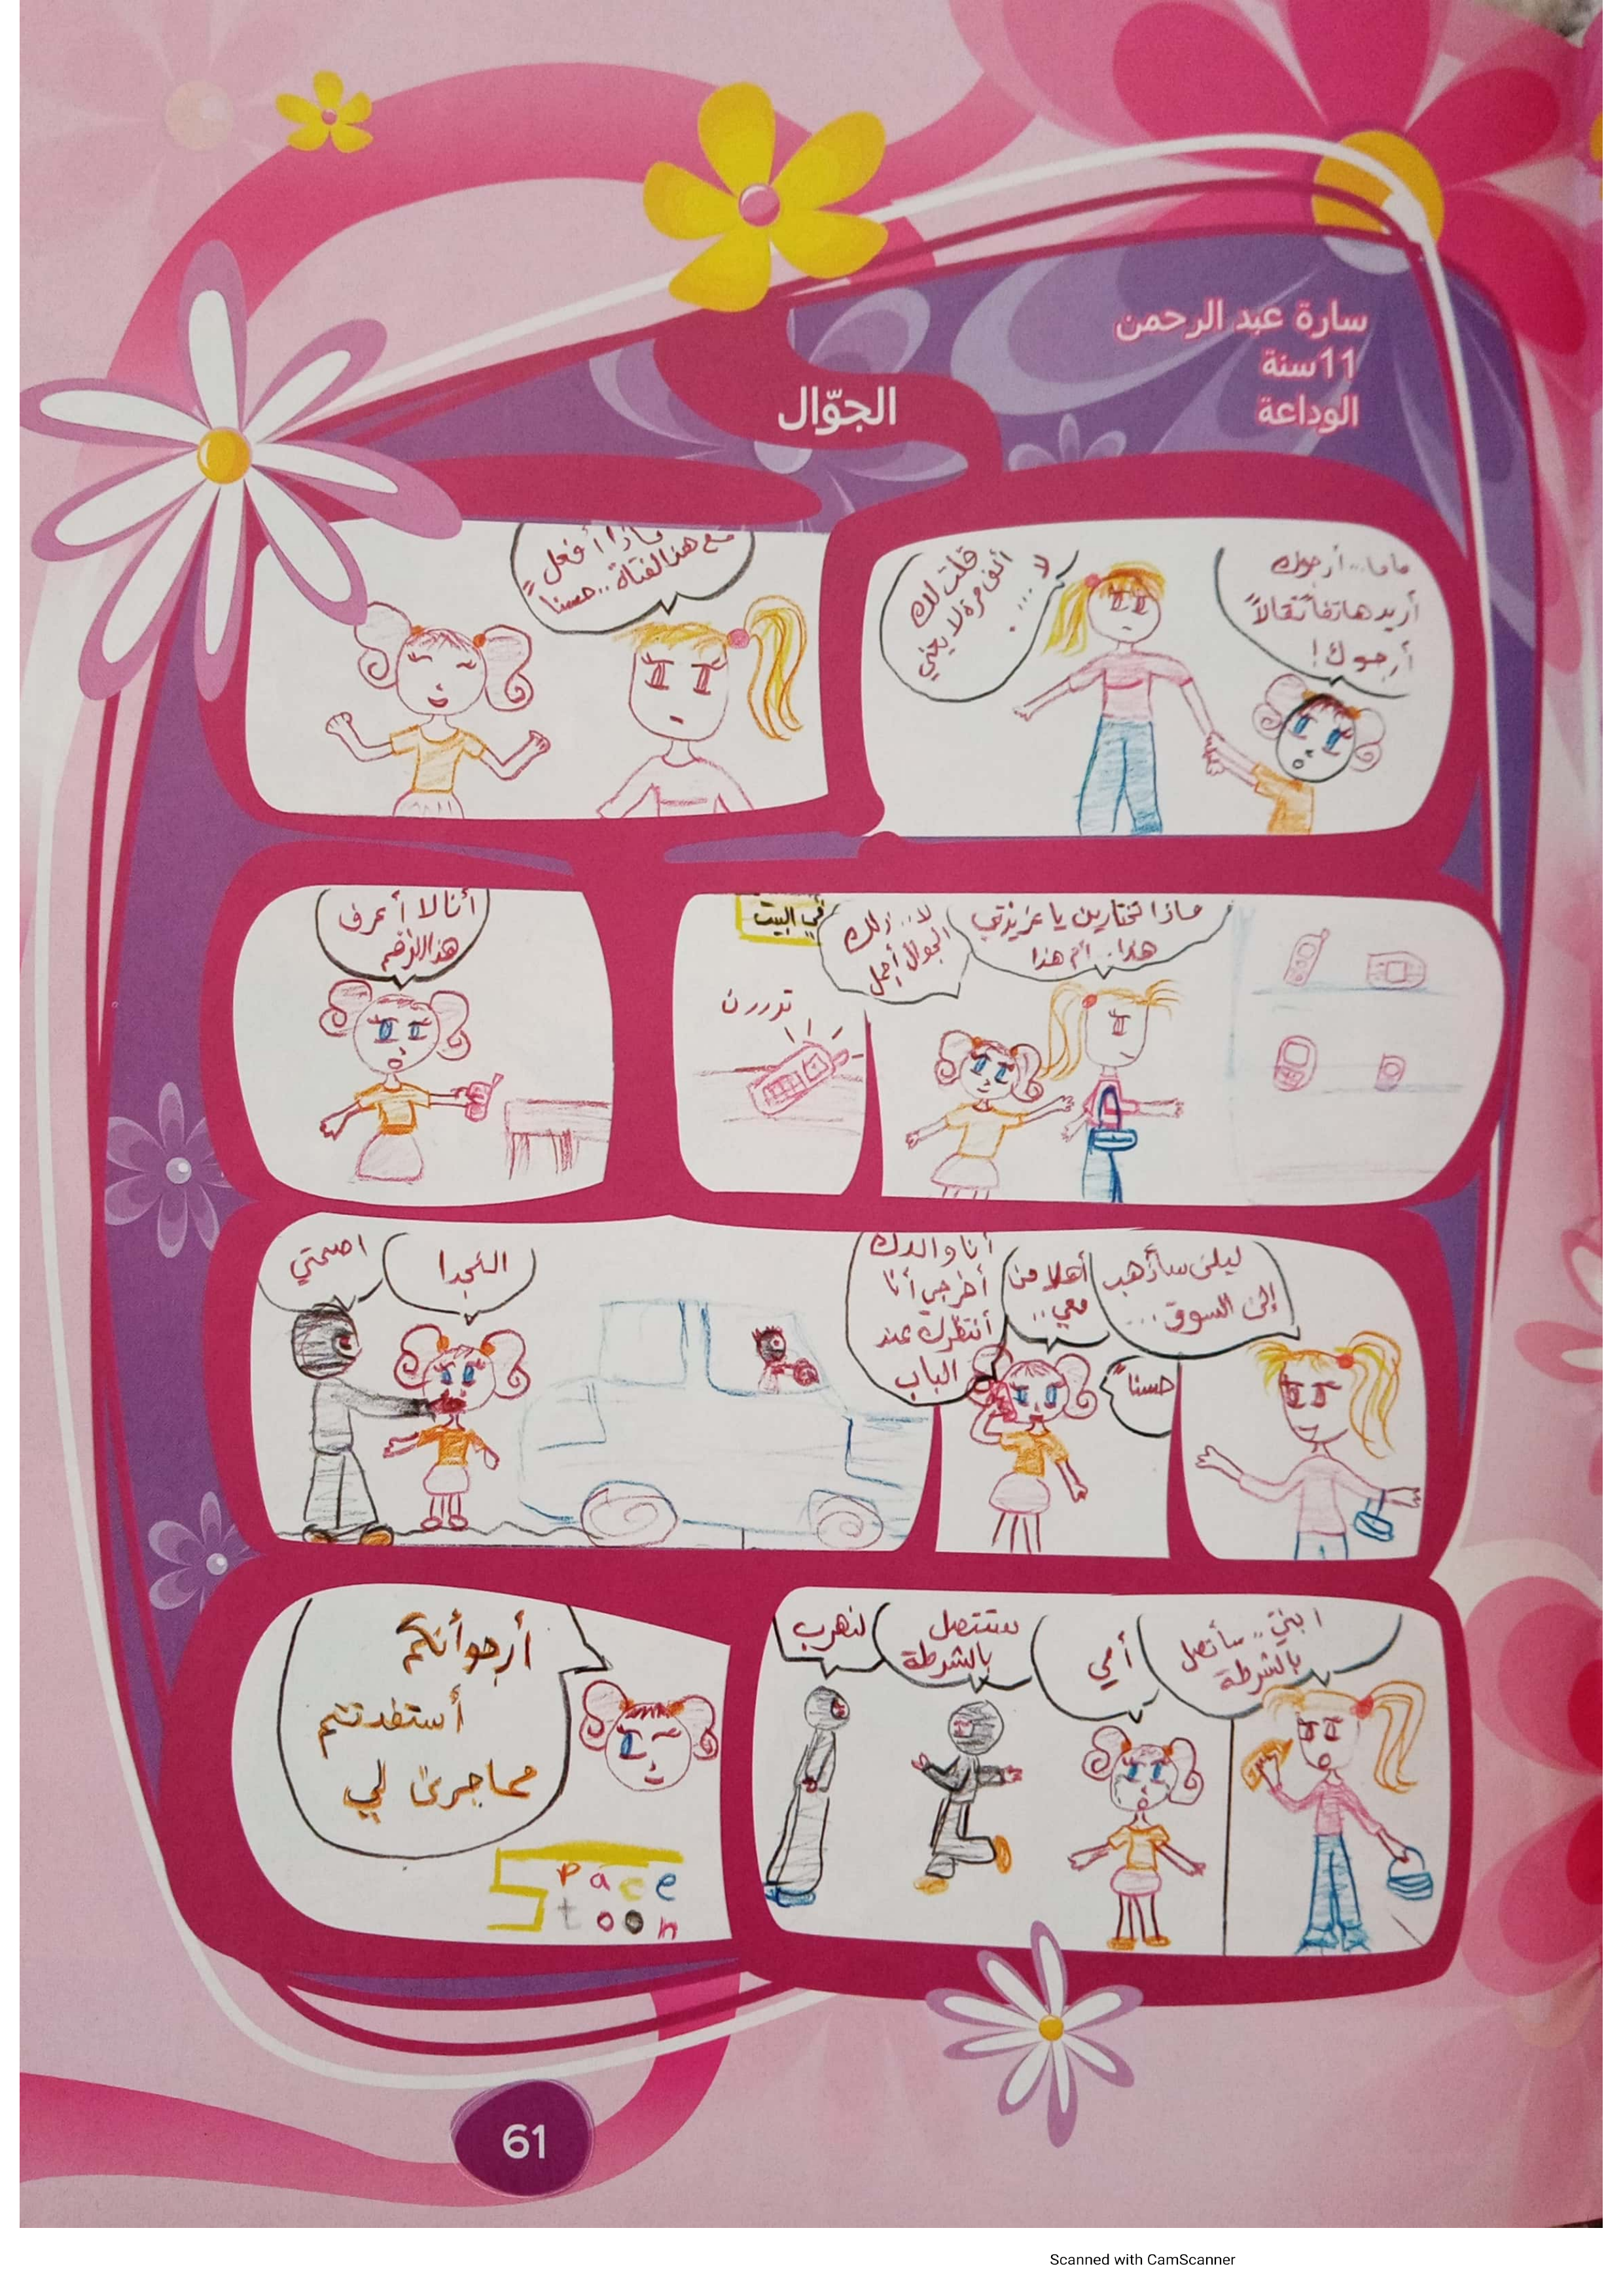 سارة عبد الرحمن
11 سنة
الوداعة
الجوّال
ماما... أرجوك
أريد هاتفاً نقالاً
أرجوك!
لا....
قلت لك
ألف مرة لا يعني
ماذا أفعل
مع هذا لفتاة.. حسناً
ماذا تختارين يا عزيزتي
هذا.. أم هذا
لا.. ذلك
الجوال أجمل
في البيت
تررررن
أنا لا أعرف
هذا الرقم
ليلى سأذهب
إلى السوق....
حسناً
أهلا من
معي..
أنا والدك
أخرجي أنا
أنتظرك عند
الباب
النجدا
اصمتي
ابنتي.. سأتصل
بالشرطة
أمي
ستتصل
بالشرطة
لنهرب
أرجوا أنكم
أستفدتتم
مما جرى لي
Space
toon
61
Scanned with CamScanner